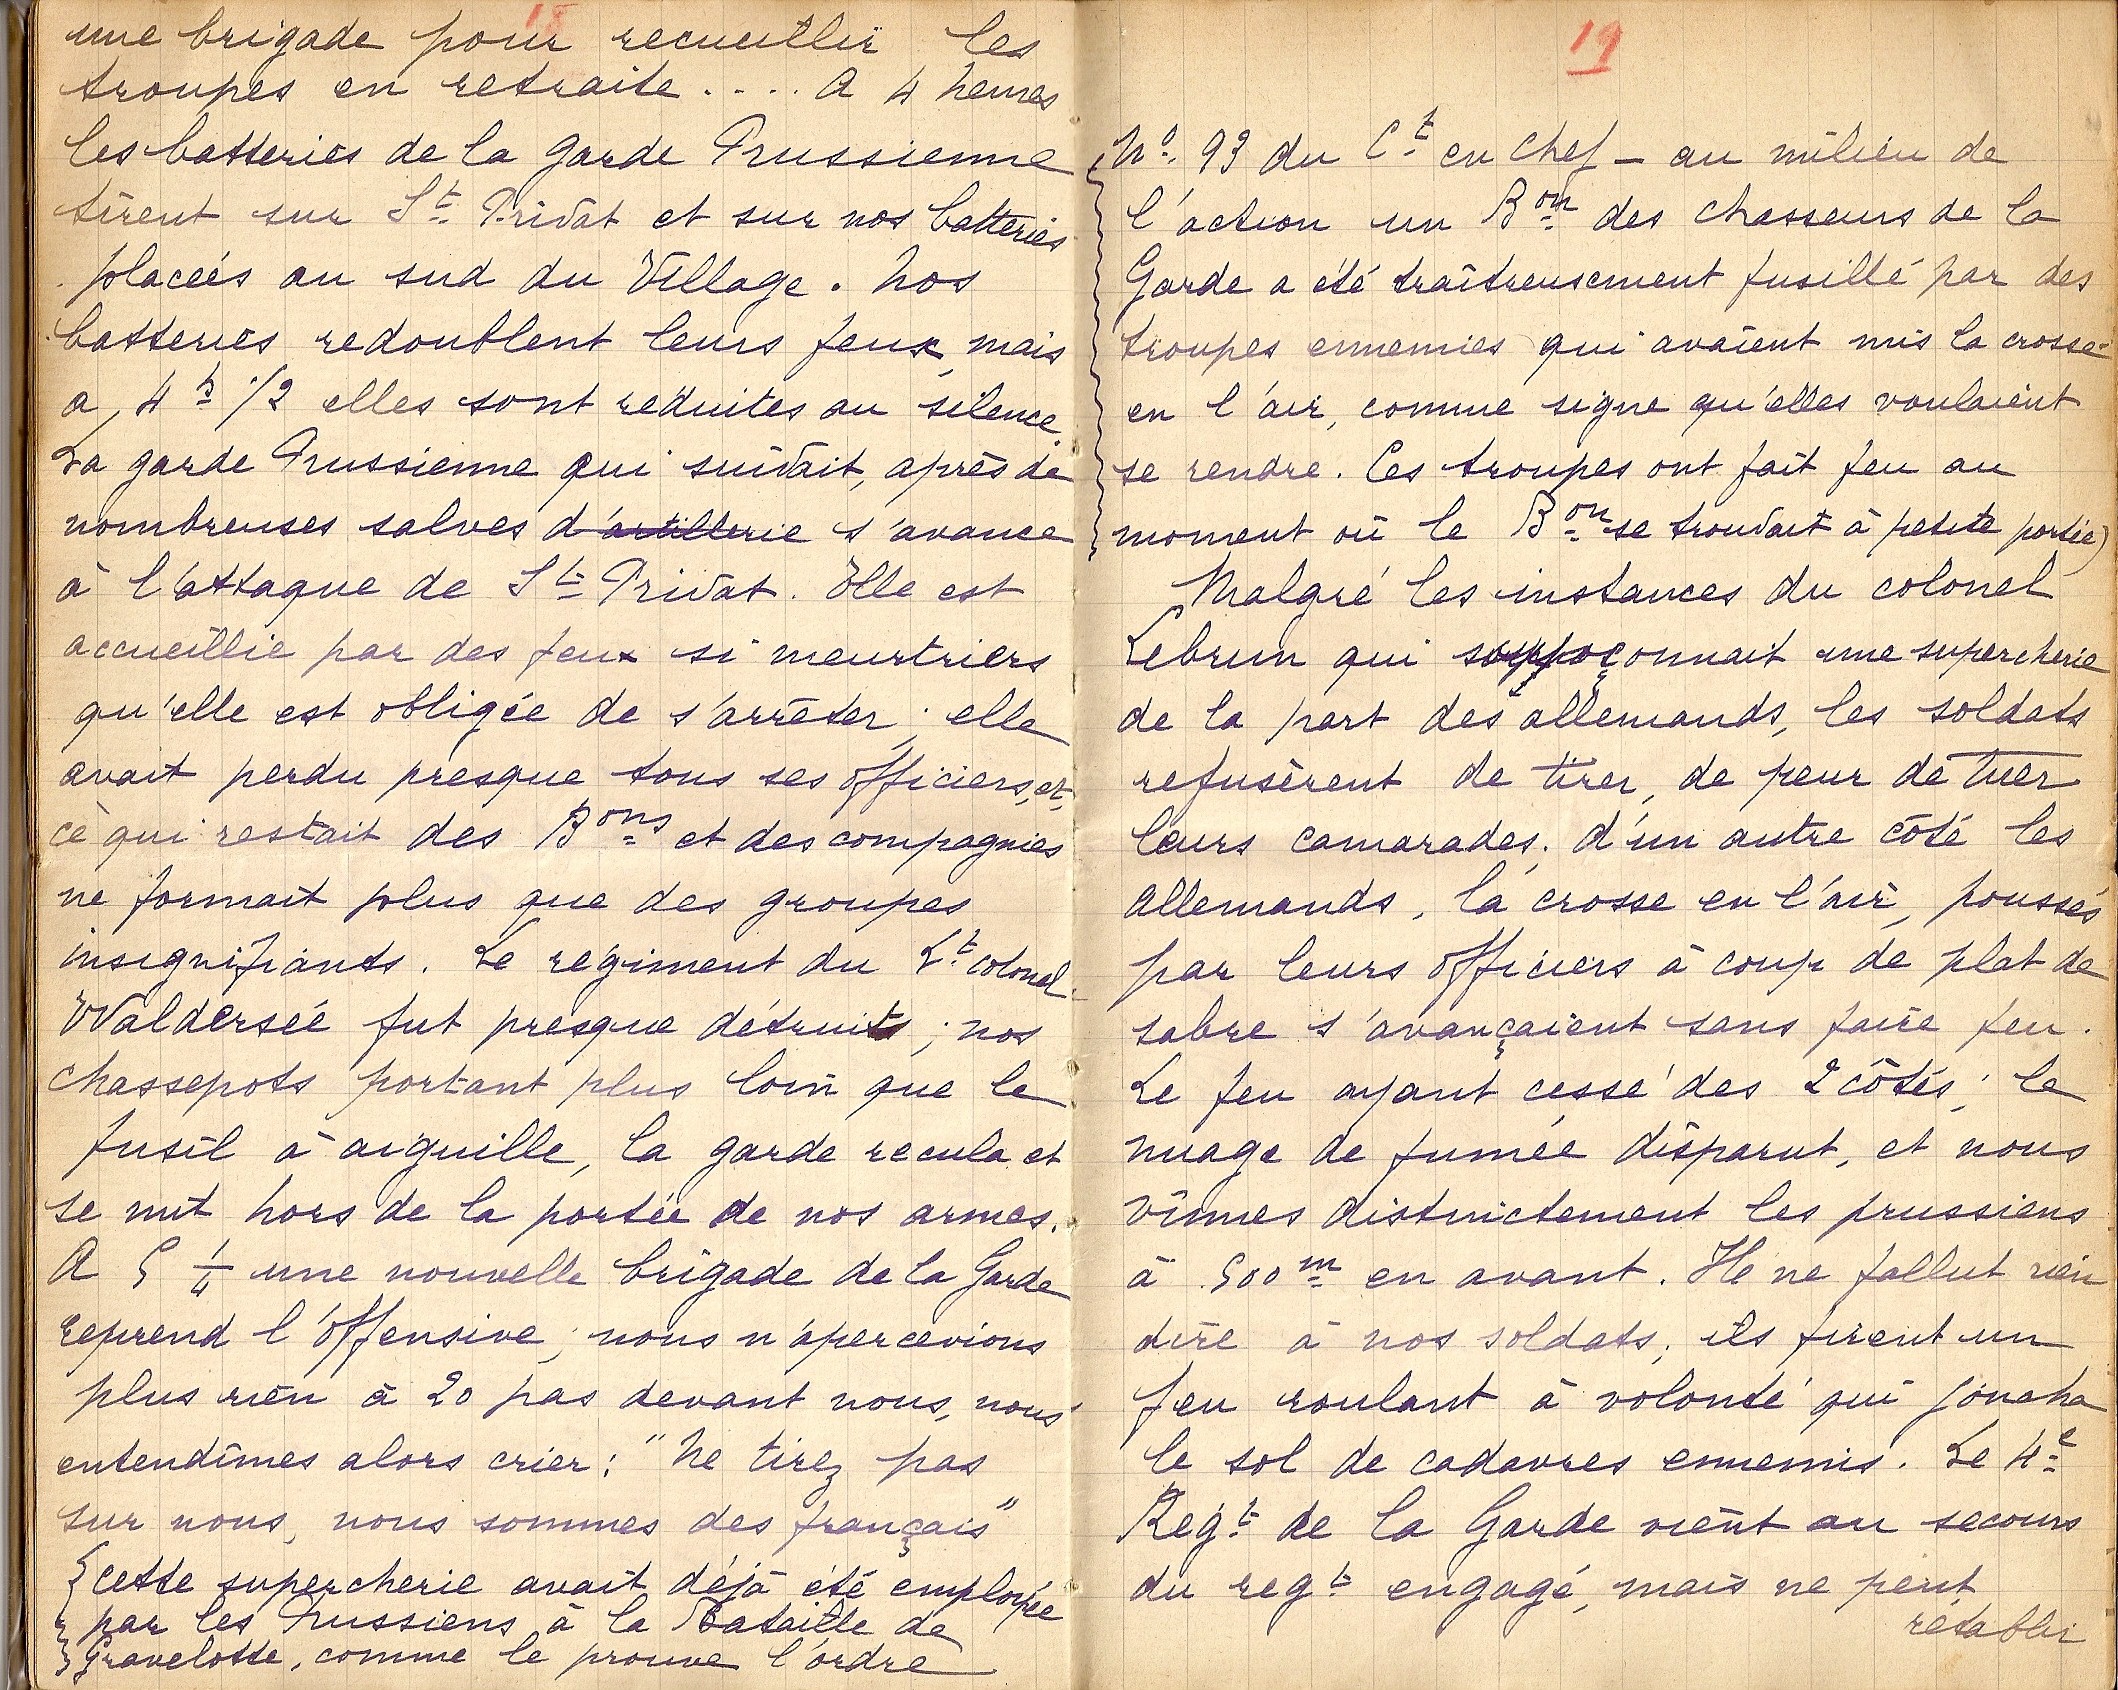 18
une brigade pour recueillir les
troupes en retraite.... A 4 heures
les batteries de la garde Prussienne
tirent sur St Privat et sur nos batteries
placées au sud du Village. Nos
batteries redoublent leurs feux, mais
a, 4h 1/2 elles sont réduites au silence.
La garde Prussienne qui suivait, après de
nombreuses salves d'artillerie s'avance
à l'attaque de St Privat. Elle est
accueillie par des feux si meurtriers
qu'elle est obligée de s'arrêter; elle
avait perdu presque tous ses officiers, et
ce qui restait des Bons et des compagnies
ne formait plus que des groupes
insignifiants. Le régiment du Lt colonel
Waldersée fut presque détruit; nos
chassepots portant plus loin que le
fusil à aiguille, la garde recula et
se mit hors de la portée de nos armes.
A 5 1/4 une nouvelle brigade de la Garde
reprend l'offensive; nous n'apercevions
plus rien à 20 pas devant nous, nous
entendîmes alors crier: "Ne tirez pas
sur nous, nous sommes des français"
(cette supercherie avait déjà été employée
par les Prussiens à la Bataille de
Gravelotte, comme le prouve l'ordre
19
No. 93 du Ct en chef - au milieu de
l'action un Bon des chasseurs de la
Garde a été traîtreusement fusillé par des
troupes ennemies qui avaient mis la crosse
en l'air, comme signe qu'elles voulaient
se rendre. Ces troupes ont fait feu au
moment où le Bon se trouvait à petite portée)
Malgré les instances du colonel
Lebrun qui soupçonnait une supercherie
de la part des allemands, les soldats
refusèrent de tirer, de peur de tuer
leurs camarades; d'un autre côté les
allemands, la crosse en l'air, poussés
par leurs officiers à coup de plat de
sabre s'avançaient sans faire feu.
Le feu ayant cessé des 2 côtés; le
nuage de fumée disparut, et nous
vîmes distinctement les prussiens
à 500m en avant. Il ne fallut rien
dire à nos soldats; ils firent un
feu roulant à volonté qui joncha
le sol de cadavres ennemis. Le 4e
Regt de la Garde vient au secours
du regt engagé, mais ne peut
rétablir